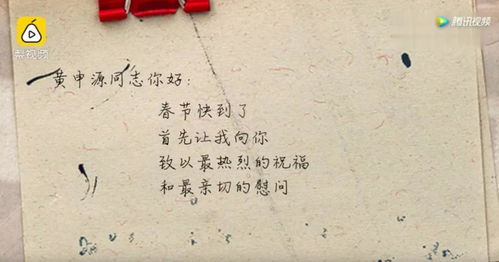 梨视频
腾讯视频
黄申源同志你好：
春节快到了
首先让我向你
致以最热烈的祝福
和最亲切的慰问